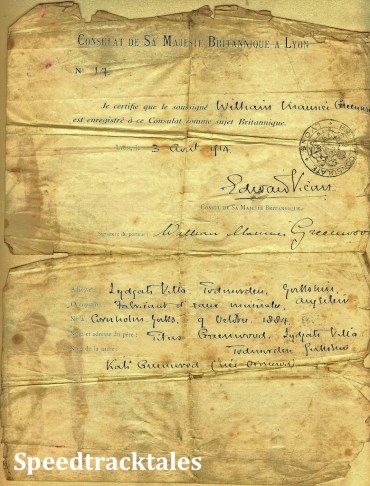 CONSULAT DE SA MAJESTE BRITANNIQUE A LYON
N° 17
Je certifie que le soussigné William Maurice Greenwood
est enregistré à ce Consulat comme sujet Britannique.
3 Avril 1914
Edward Vicars
CONSUL DE SA MAJESTÉ BRITANNIQUE
Signature du porteur: William Maurice Greenwood
Adresse: Lydgate Villa, Todmorden, Yorkshire,
Occupation: Fabricant d'eaux minérales, Angleterre
Né à Cornholm Yorks, 9 Octobre 1884
Nom et adresse du père: Titus Greenwood, Lydgate Villa
Todmorden Yorkshire
Nom de la mère:
Kate Greenwood (née Ormerod)
Speedtracktales